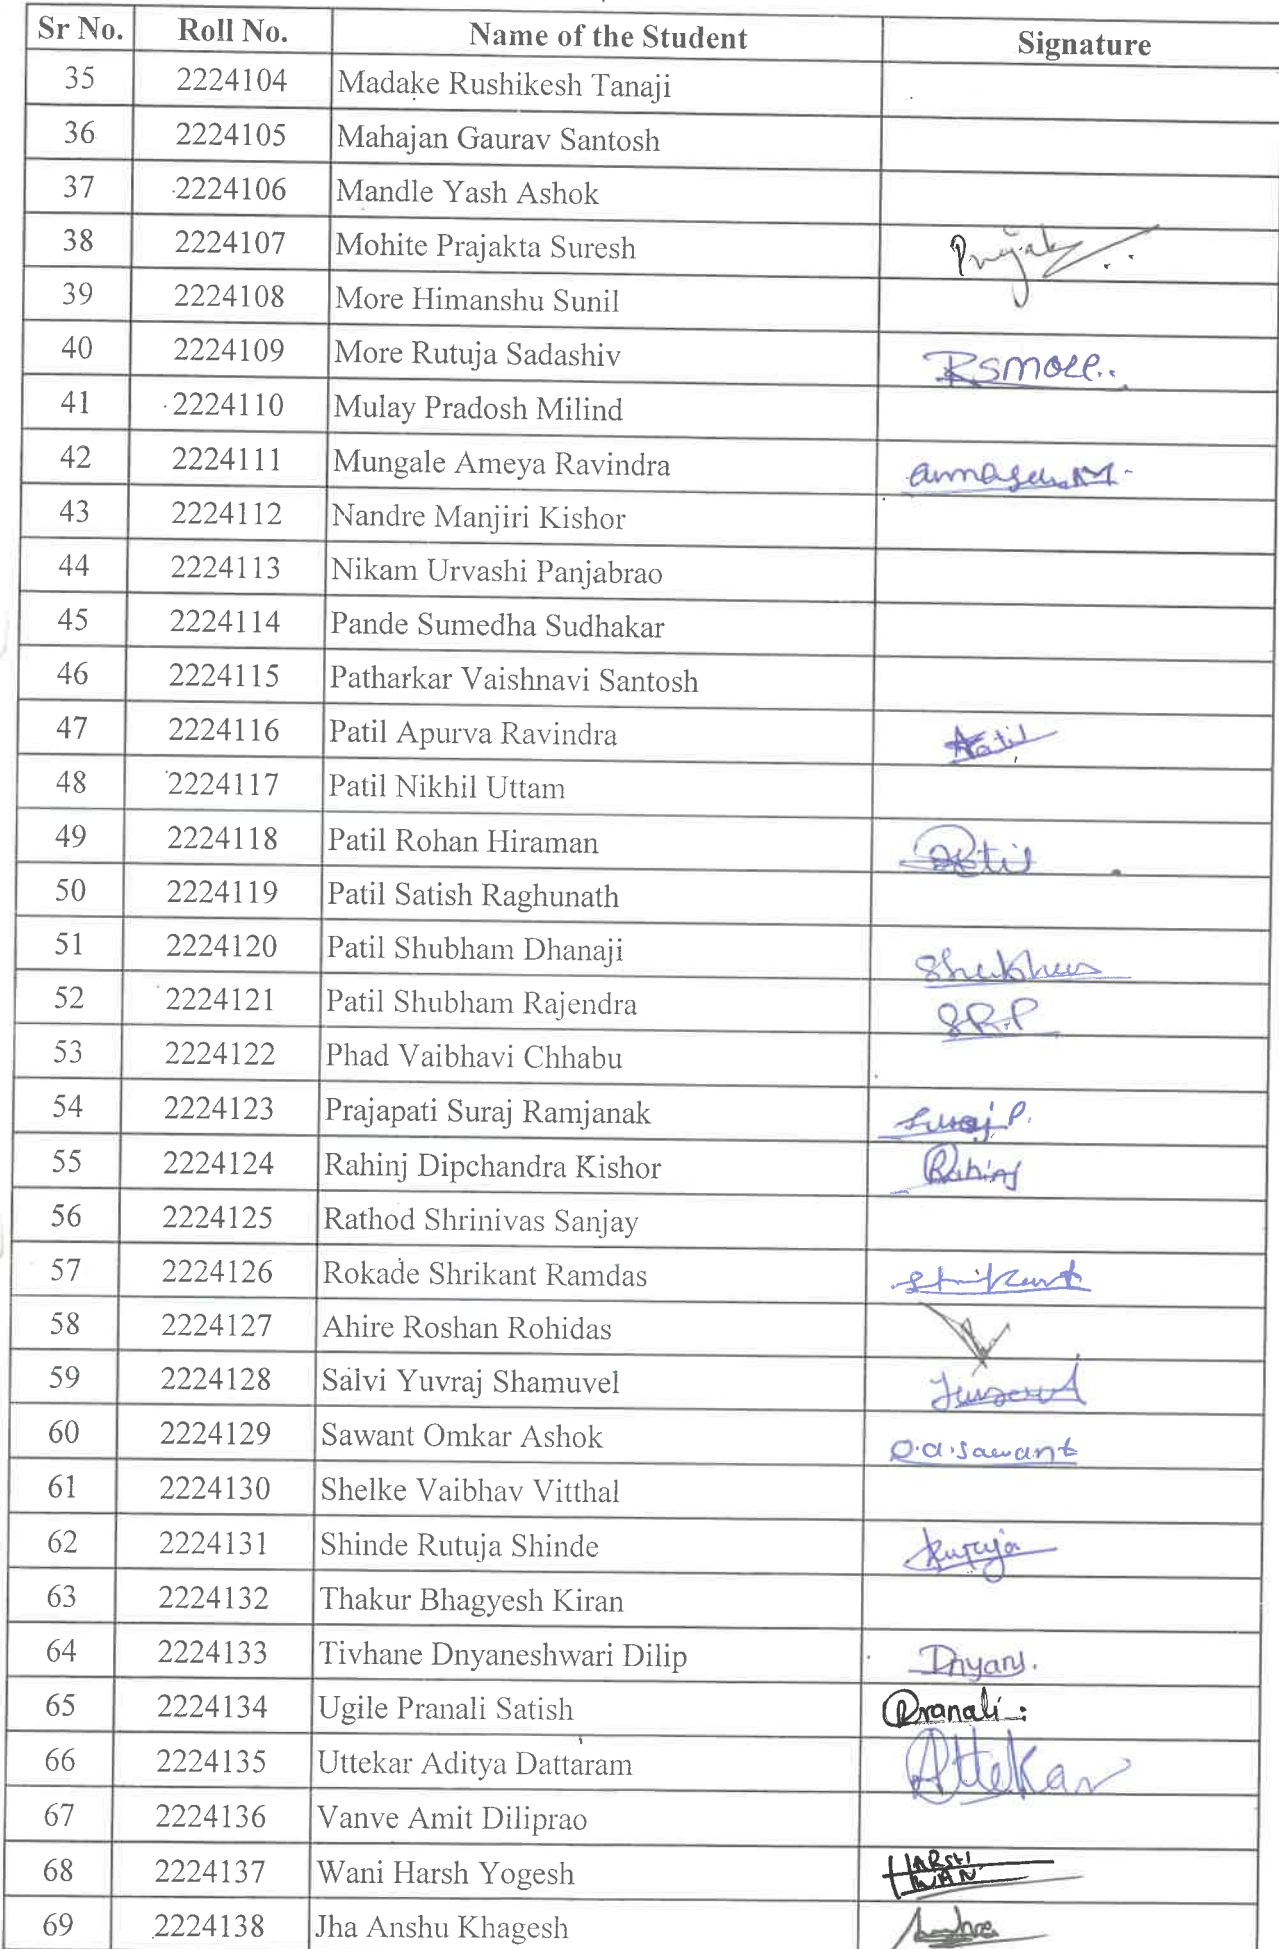 Sr No. Roll No. Name of the Student Signature
35 2224104 Madake Rushikesh Tanaji
36 2224105 Mahajan Gaurav Santosh
37 2224106 Mandle Yash Ashok
38 2224107 Mohite Prajakta Suresh
39 2224108 More Himanshu Sunil
40 2224109 More Rutuja Sadashiv RSMore..
41 2224110 Mulay Pradosh Milind
42 2224111 Mungale Ameya Ravindra
43 2224112 Nandre Manjiri Kishor
44 2224113 Nikam Urvashi Panjabrao
45 2224114 Pande Sumedha Sudhakar
46 2224115 Patharkar Vaishnavi Santosh
47 2224116 Patil Apurva Ravindra
48 2224117 Patil Nikhil Uttam
49 2224118 Patil Rohan Hiraman
50 2224119 Patil Satish Raghunath
51 2224120 Patil Shubham Dhanaji
52 2224121 Patil Shubham Rajendra S.R.P
53 2224122 Phad Vaibhavi Chhabu
54 2224123 Prajapati Suraj Ramjanak Suraj P.
55 2224124 Rahinj Dipchandra Kishor Rahinj
56 2224125 Rathod Shrinivas Sanjay
57 2224126 Rokade Shrikant Ramdas Shrikant
58 2224127 Ahire Roshan Rohidas
59 2224128 Salvi Yuvraj Shamuvel
60 2224129 Sawant Omkar Ashok O.a.sawant
61 2224130 Shelke Vaibhav Vitthal
62 2224131 Shinde Rutuja Shinde Rutuja
63 2224132 Thakur Bhagyesh Kiran
64 2224133 Tivhane Dnyaneshwari Dilip
65 2224134 Ugile Pranali Satish Pranali
66 2224135 Uttekar Aditya Dattaram Attekar
67 2224136 Vanve Amit Diliprao
68 2224137 Wani Harsh Yogesh HARSH WANI
69 2224138 Jha Anshu Khagesh